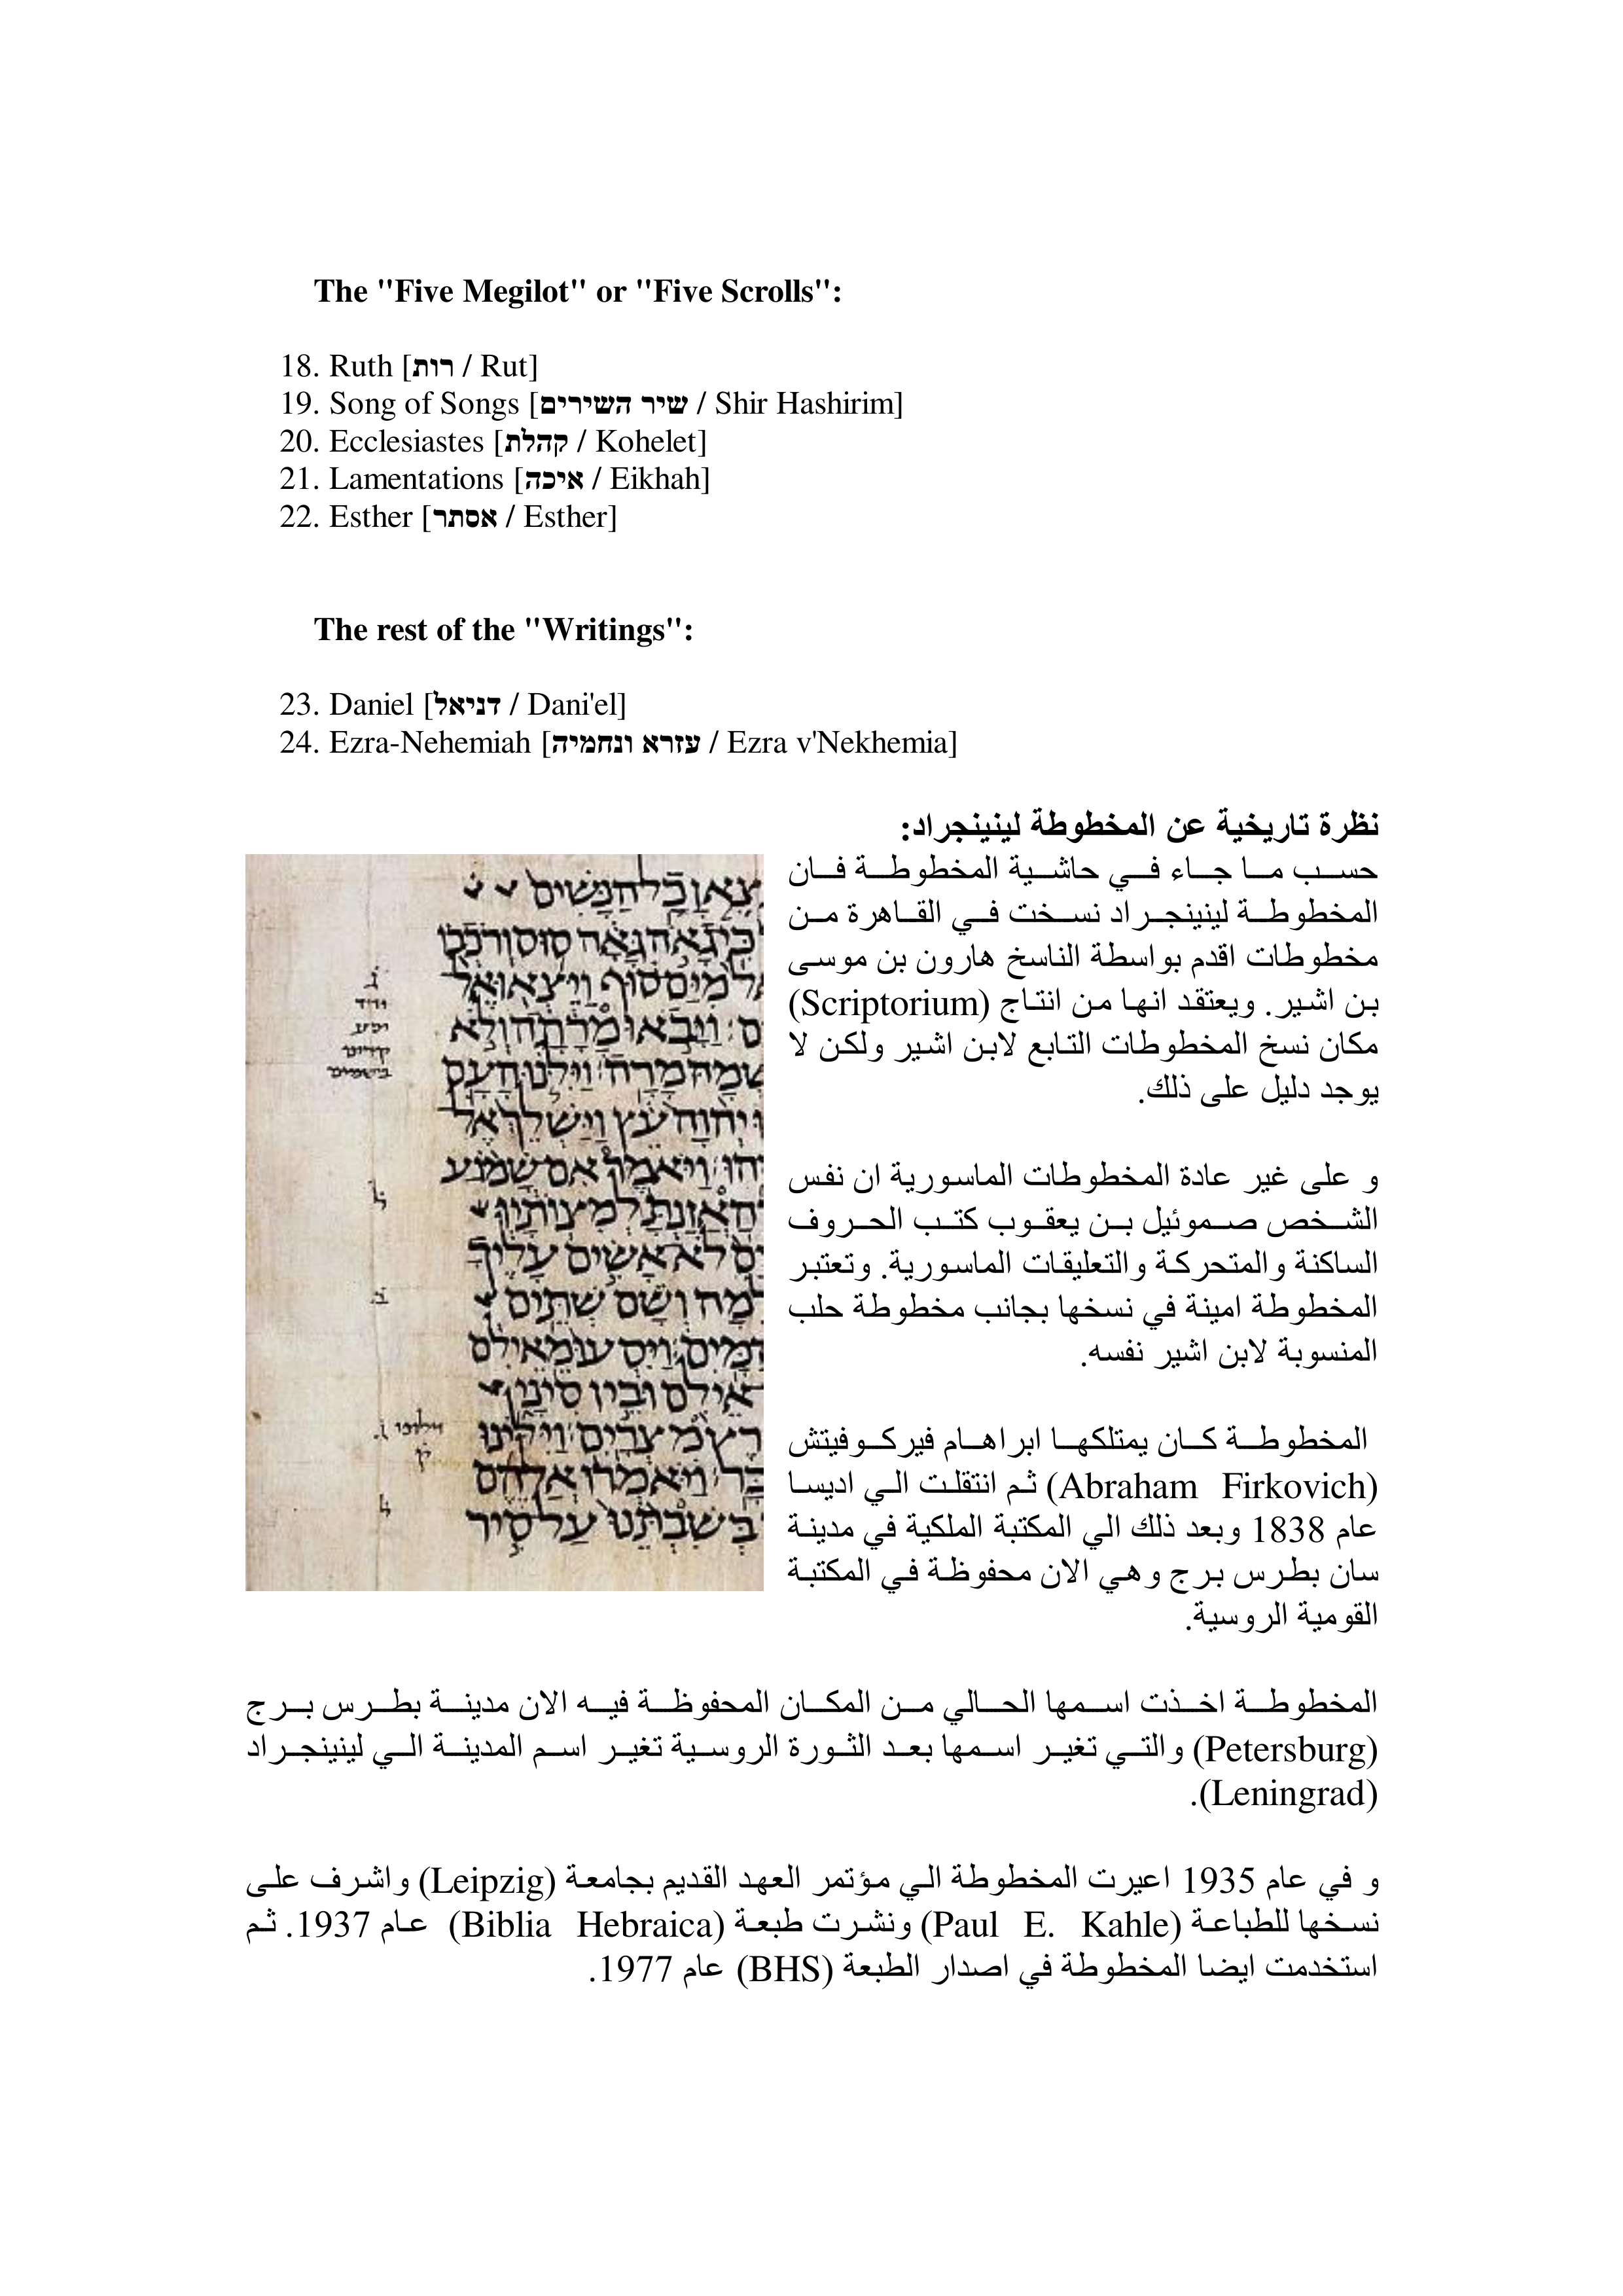 The "Five Megilot" or "Five Scrolls":
18. Ruth [רות / Rut]
19. Song of Songs [שיר השירים / Shir Hashirim]
20. Ecclesiastes [קהלת / Kohelet]
21. Lamentations [איכה / Eikhah]
22. Esther [אסתר / Esther]
The rest of the "Writings":
23. Daniel [דניאל / Dani'el]
24. Ezra-Nehemiah [עזרא ונחמיה / Ezra v'Nekhemia]
نظرة تاريخية عن المخطوطة لينينجراد:
حسب ما جاء في حاشية المخطوطة فان
المخطوطة لينينجراد نسخت في القاهرة من
مخطوطات اقدم بواسطة الناسخ هارون بن موسى
بن اشير. ويعتقد انها من انتاج (Scriptorium)
مكان نسخ المخطوطات التابع لابن اشير ولكن لا
يوجد دليل على ذلك.
و على غير عادة المخطوطات الماسورية ان نفس
الشخص صموئيل بن يعقوب كتب الحروف
الساكنة والمتحركة والتعليقات الماسورية. وتعتبر
المخطوطة امينة في نسخها بجانب مخطوطة حلب
المنسوبة لابن اشير نفسه.
المخطوطة كان يمتلكها ابراهام فيركوفيتش
(Abraham Firkovich) ثم انتقلت الي اديسا
عام 1838 وبعد ذلك الي المكتبة الملكية في مدينة
سان بطرس برج وهي الان محفوظة في المكتبة
القومية الروسية.
المخطوطة اخذت اسمها الحالي من المكان المحفوظة فيه الان مدينة بطرس برج
(Petersburg) والتي تغير اسمها بعد الثورة الروسية تغير اسم المدينة الي لينينجراد
(Leningrad).
و في عام 1935 اعيرت المخطوطة الي مؤتمر العهد القديم بجامعة (Leipzig) واشرف على
نسخها للطباعة (Paul E. Kahle) ونشرت طبعة (Biblia Hebraica) عام 1937. ثم
استخدمت ايضا المخطوطة في اصدار الطبعة (BHS) عام 1977.